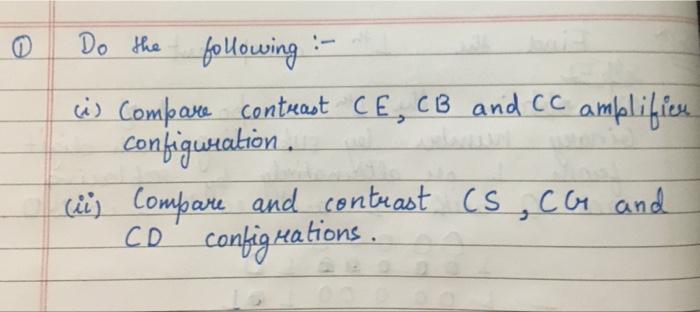 ① Do the following :-
(i) Compare contrast CE, CB and CC amplifier
configuration.
(ii) Compare and contrast CS, CG and
CD configrations.